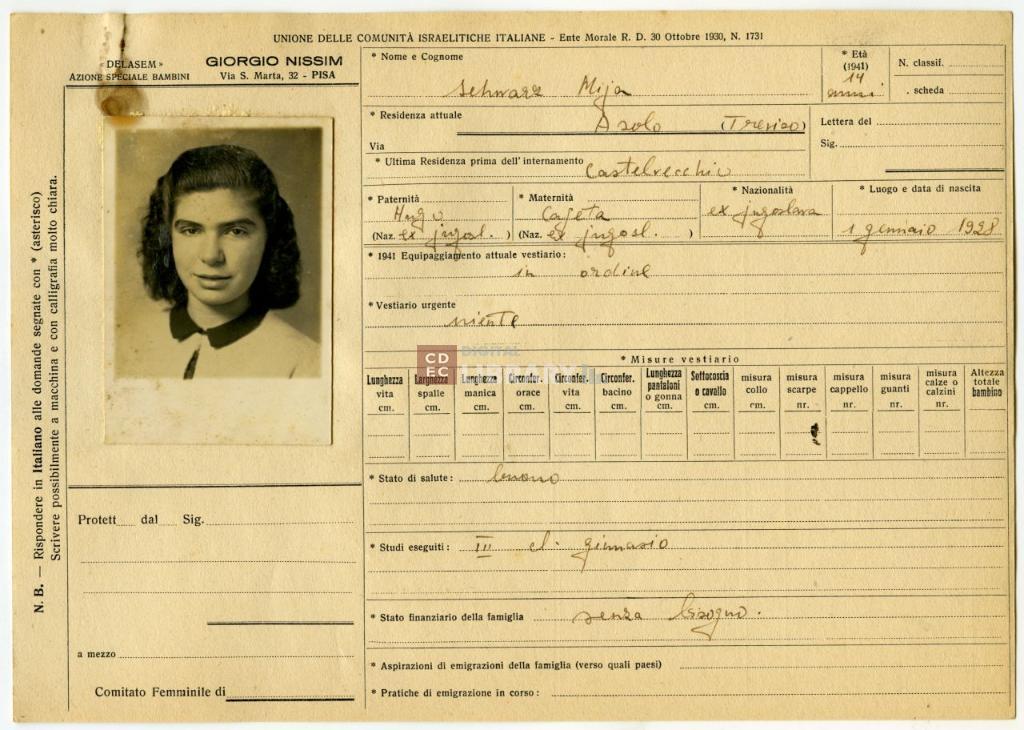 UNIONE DELLE COMUNITÀ ISRAELITICHE ITALIANE - Ente Morale R. D. 30 Ottobre 1930, N. 1731
« DELASEM »
AZIONE SPECIALE BAMBINI
GIORGIO NISSIM
Via S. Marta, 32 - PISA
N. B. — Rispondere in Italiano alle domande segnate con * (asterisco)
Scrivere possibilmente a macchina e con calligrafia molto chiara.
Protett dal Sig.
a mezzo
Comitato Femminile di
* Nome e Cognome
Schwarz Mija
* Età
(1941)
14
anni
N. classif.
. scheda
* Residenza attuale
Asolo (Treviso)
Via
Lettera del
Sig.
* Ultima Residenza prima dell'internamento Castelvecchio
* Paternità
Hugo
(Naz. ex jugosl. )
* Maternità
Cajeta
(Naz. ex jugosl. )
* Nazionalità
ex jugoslava
* Luogo e data di nascita
1 gennaio 1928
* 1941 Equipaggiamento attuale vestiario:
in ordine
* Vestiario urgente
niente
CD
EC
DIGITAL
LIBRARY
* Misure vestiario
Lunghezza vita cm.
Larghezza spalle cm.
Lunghezza manica cm.
Circonfer. orace cm.
Circonfer. vita cm.
Circonfer. bacino cm.
Lunghezza pantaloni o gonna cm.
Sottocoscia o cavallo cm.
misura collo cm.
misura scarpe nr.
misura cappello nr.
misura guanti nr.
misura calze o calzini nr.
Altezza totale bambino
* Stato di salute: buono
* Studi eseguiti: III cl. ginnasio
* Stato finanziario della famiglia senza bisogno.
* Aspirazioni di emigrazioni della famiglia (verso quali paesi)
* Pratiche di emigrazione in corso: